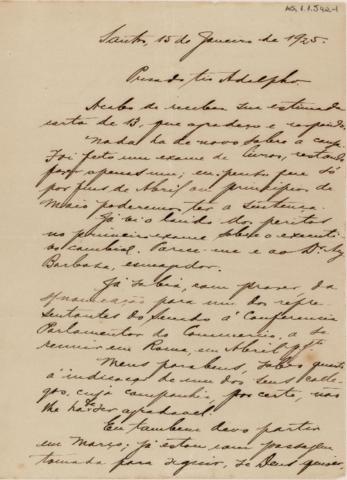 AG, 1.1.542-1
Santos, 15 de Janeiro de 1925.
Presado tio Adolpho.
Acabo de receber sua estimada
carta de 13, que agradeço e respondo.
Nada ha de novo sobre a
Foi feito um exame de livros, restando
apenas um; supponho que só
por fins de Abril ou principios de
Maio poderemos ter a sentença.
Já vi o laudo dos peritos
no primeiro exame sobre o executi-
vo cambial. Parece-me e ao Dr.
Barbosa, esmagador.
Já sabia, com prazer, da
nomeação para um dos repre-
sentantes do Senado á Conferencia
Parlamentar do Commercio, a se
reunir em Roma, em Abril
Meus parabens, sobre
á indicação de um dos seus colle-
gas, cuja companhia, por certo, nos
lhe ha de ser agradavel.
Eu tambem devo partir
em Março; já estou com passagem
tomada para seguir, se Deus quizer,